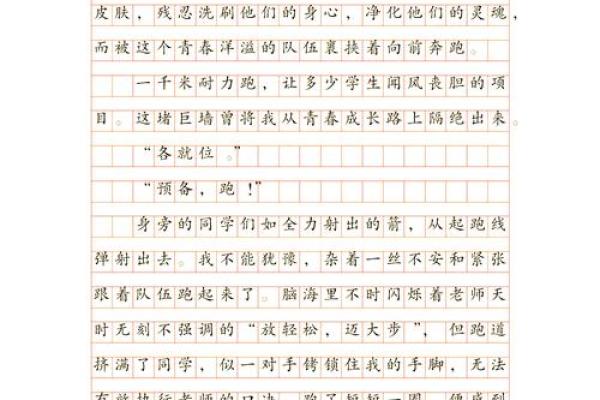 皮肤，残忍洗刷他们的身心，净化他们的灵魂，
而被这个青春洋溢的队伍裹挟着向前奔跑。
一千米耐力跑，让多少学生闻风丧胆的项
目。这堵巨墙曾将我从青春成长路上隔绝出来。
“各就位。”
“预备，跑！”
身旁的同学们如全力射出的箭，从起跑线
弹射出去。我不能犹豫，杂着一丝不安和紧张
跟着队伍跑起来了。脑海里不时闪烁着老师天
时无刻不强调的“放轻松，迈大步”，但跑道
挤满了同学，似一对手铐锁住我的手脚，无法
有效执行老师的口诀，跑了短短一圈，便感到